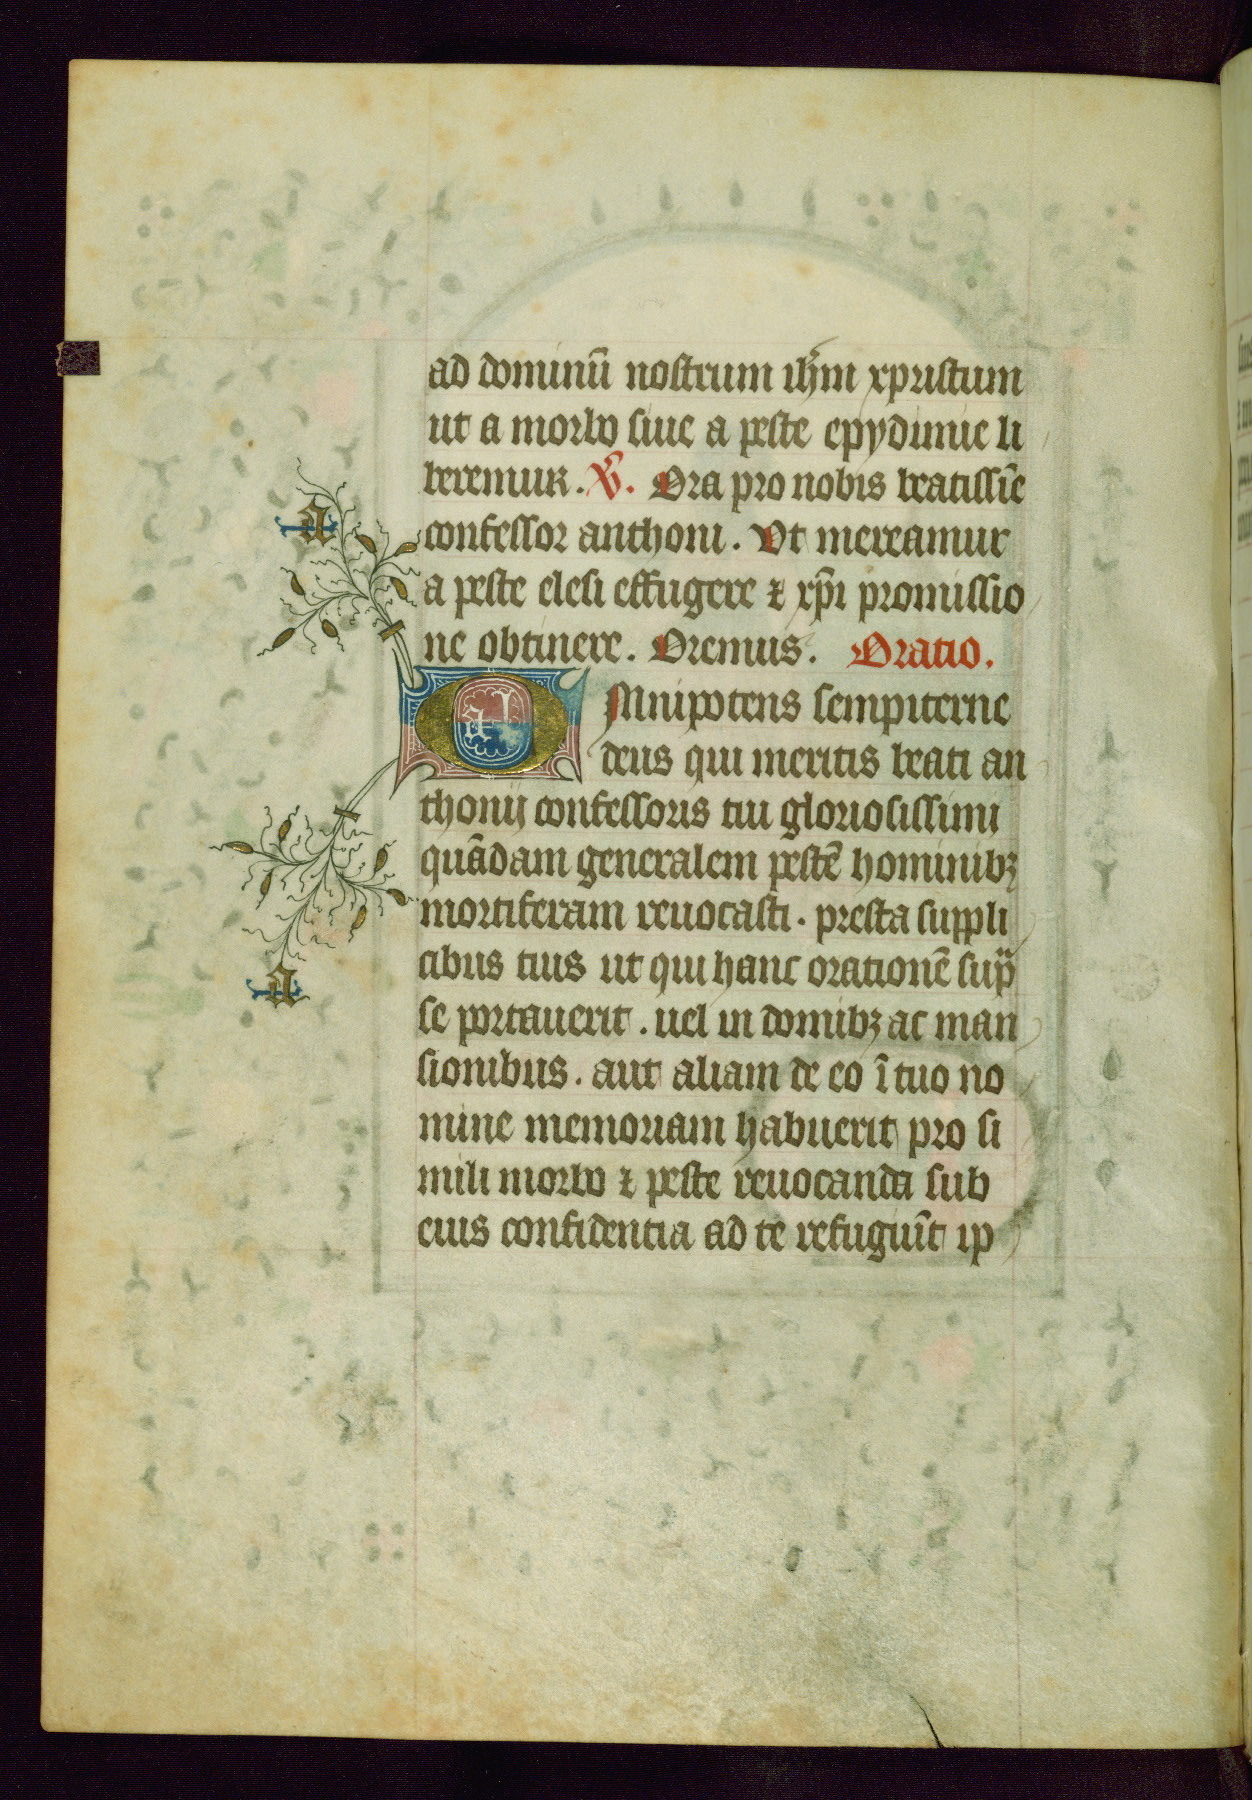 ad dominū nostrum ihm̄ xpristum
ut a morbo siue a peste epydimie li
beremur. V̄. Ora pro nobis beatissīe
confessor anthoni. Vt mereamur
a peste elesi effugere ⁊ xp̄i promissio
ne obtinere. Oremus. Oratio.
OMnipotens sempiterne
deus qui meritis beati an
thonij confessoris tui gloriosissimi
quādam generalem pestē hominibꝫ
mortiferam reuocasti. presta suppli
cibus tuis ut qui hanc orationē sup̄
se portauerit. uel in domibꝫ ac man
sionibus. aut aliam de eo ī tuo no
mine memoriam habuerit pro si
mili morbo ⁊ peste reuocanda sub
eius confidentia ad te refugiūt ip